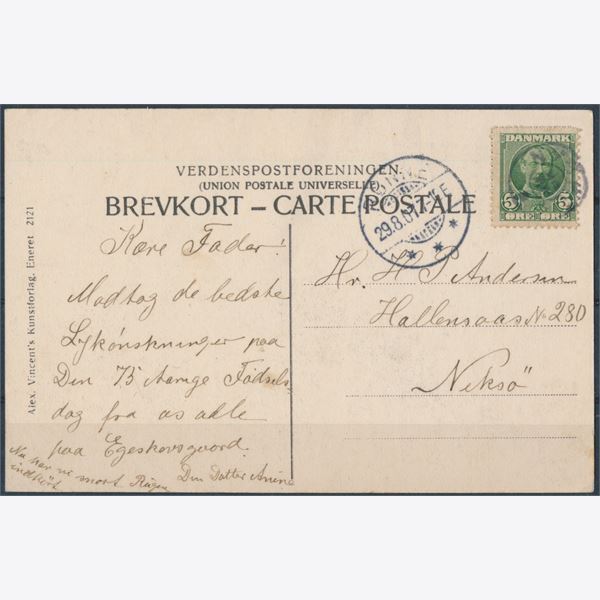 VERDENSPOSTFORENINGEN.
(UNION POSTALE UNIVERSELLE)
BREVKORT – CARTE POSTALE
DANMARK
5 5
ØRE ØRE
RØNNE
29.8.07
Kære Fader!
Modtag de bedste
Lykönskninger paa
Den 75 Aarige Födsels
dag fra os alle
paa Egeskovsgaard.
Din Datter Anine
Nu har vi snart Rugen
indkört
Hr. H P Andersen
Hallensaas No 280
Neksö
Alex. Vincent's Kunstforlag. Eneret 2121